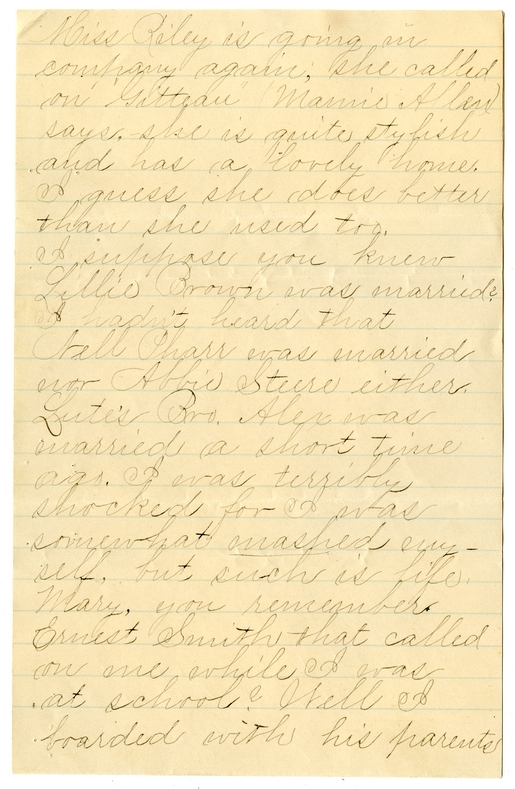 Miss Riley is going in
company again, she called
on "Gitteau" (Mamie Allen)
says, she is quite stylish
and has a lovely home.
I guess she does better
than she used too.
I suppose you knew
Lillie Brown was married?
I hadn't heard that
Nell Pharr was married
nor Abbie Steere either.
Lute's Bro. Alex was
married a short time
ago. I was terribly
shocked for I was
somewhat mashed my-
self, but such is life.
Mary, you remember
Ernest Smith that called
on me while I was
at school? Well I
boarded with his parents